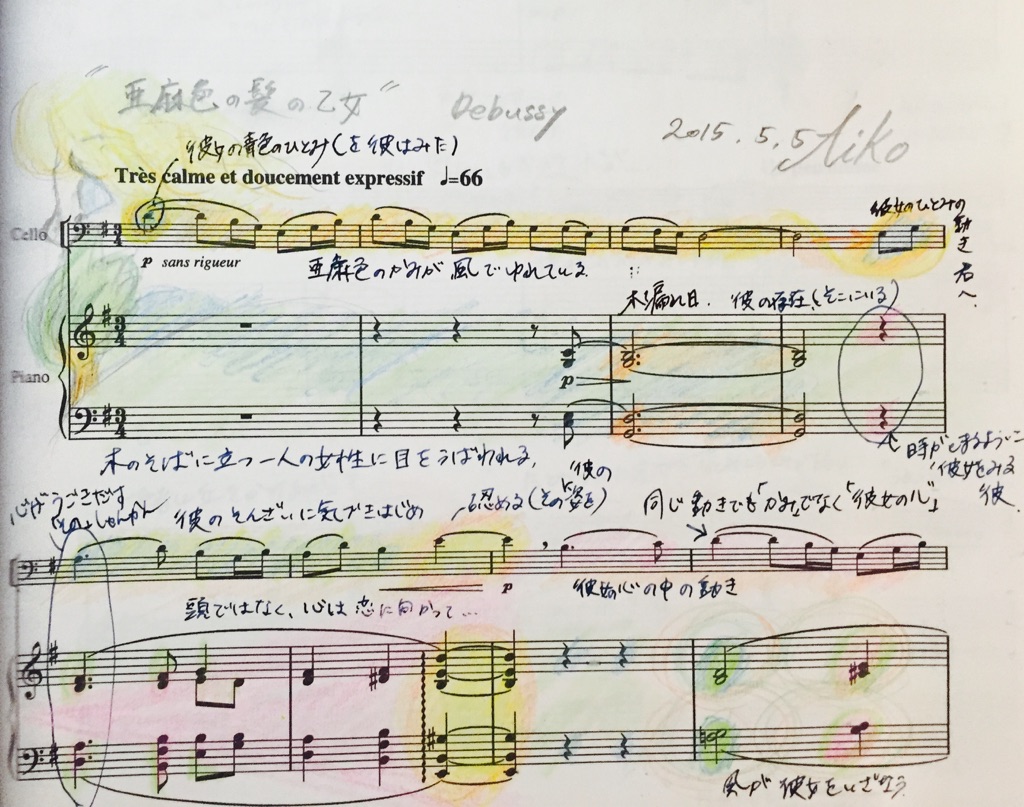 "亜麻色の髪の乙女" Debussy
2015.5.5 Aiko
彼女の青色のひとみ(を彼はみた)
Très calme et doucement expressif ♩=66
彼女のひとみの動き 君へ.
Cello
p sans rigueur
亜麻色のかみが風でゆれている
木漏れ日. 彼の存在(そこにいる)
Piano
p
木のそばに立つ一人の女性に目をうばわれる,
時がとまるように
彼女をみる
彼.
心がうごきだす
そのしゅんかん
彼のそんざいに気づきはじめ
認める(その"彼の姿を)
同じ動きでも「かみ」でなく「彼女の心」
p
彼女の心の中の動き
頭ではなく、心は恋に向かって...
風が彼女をいざなう